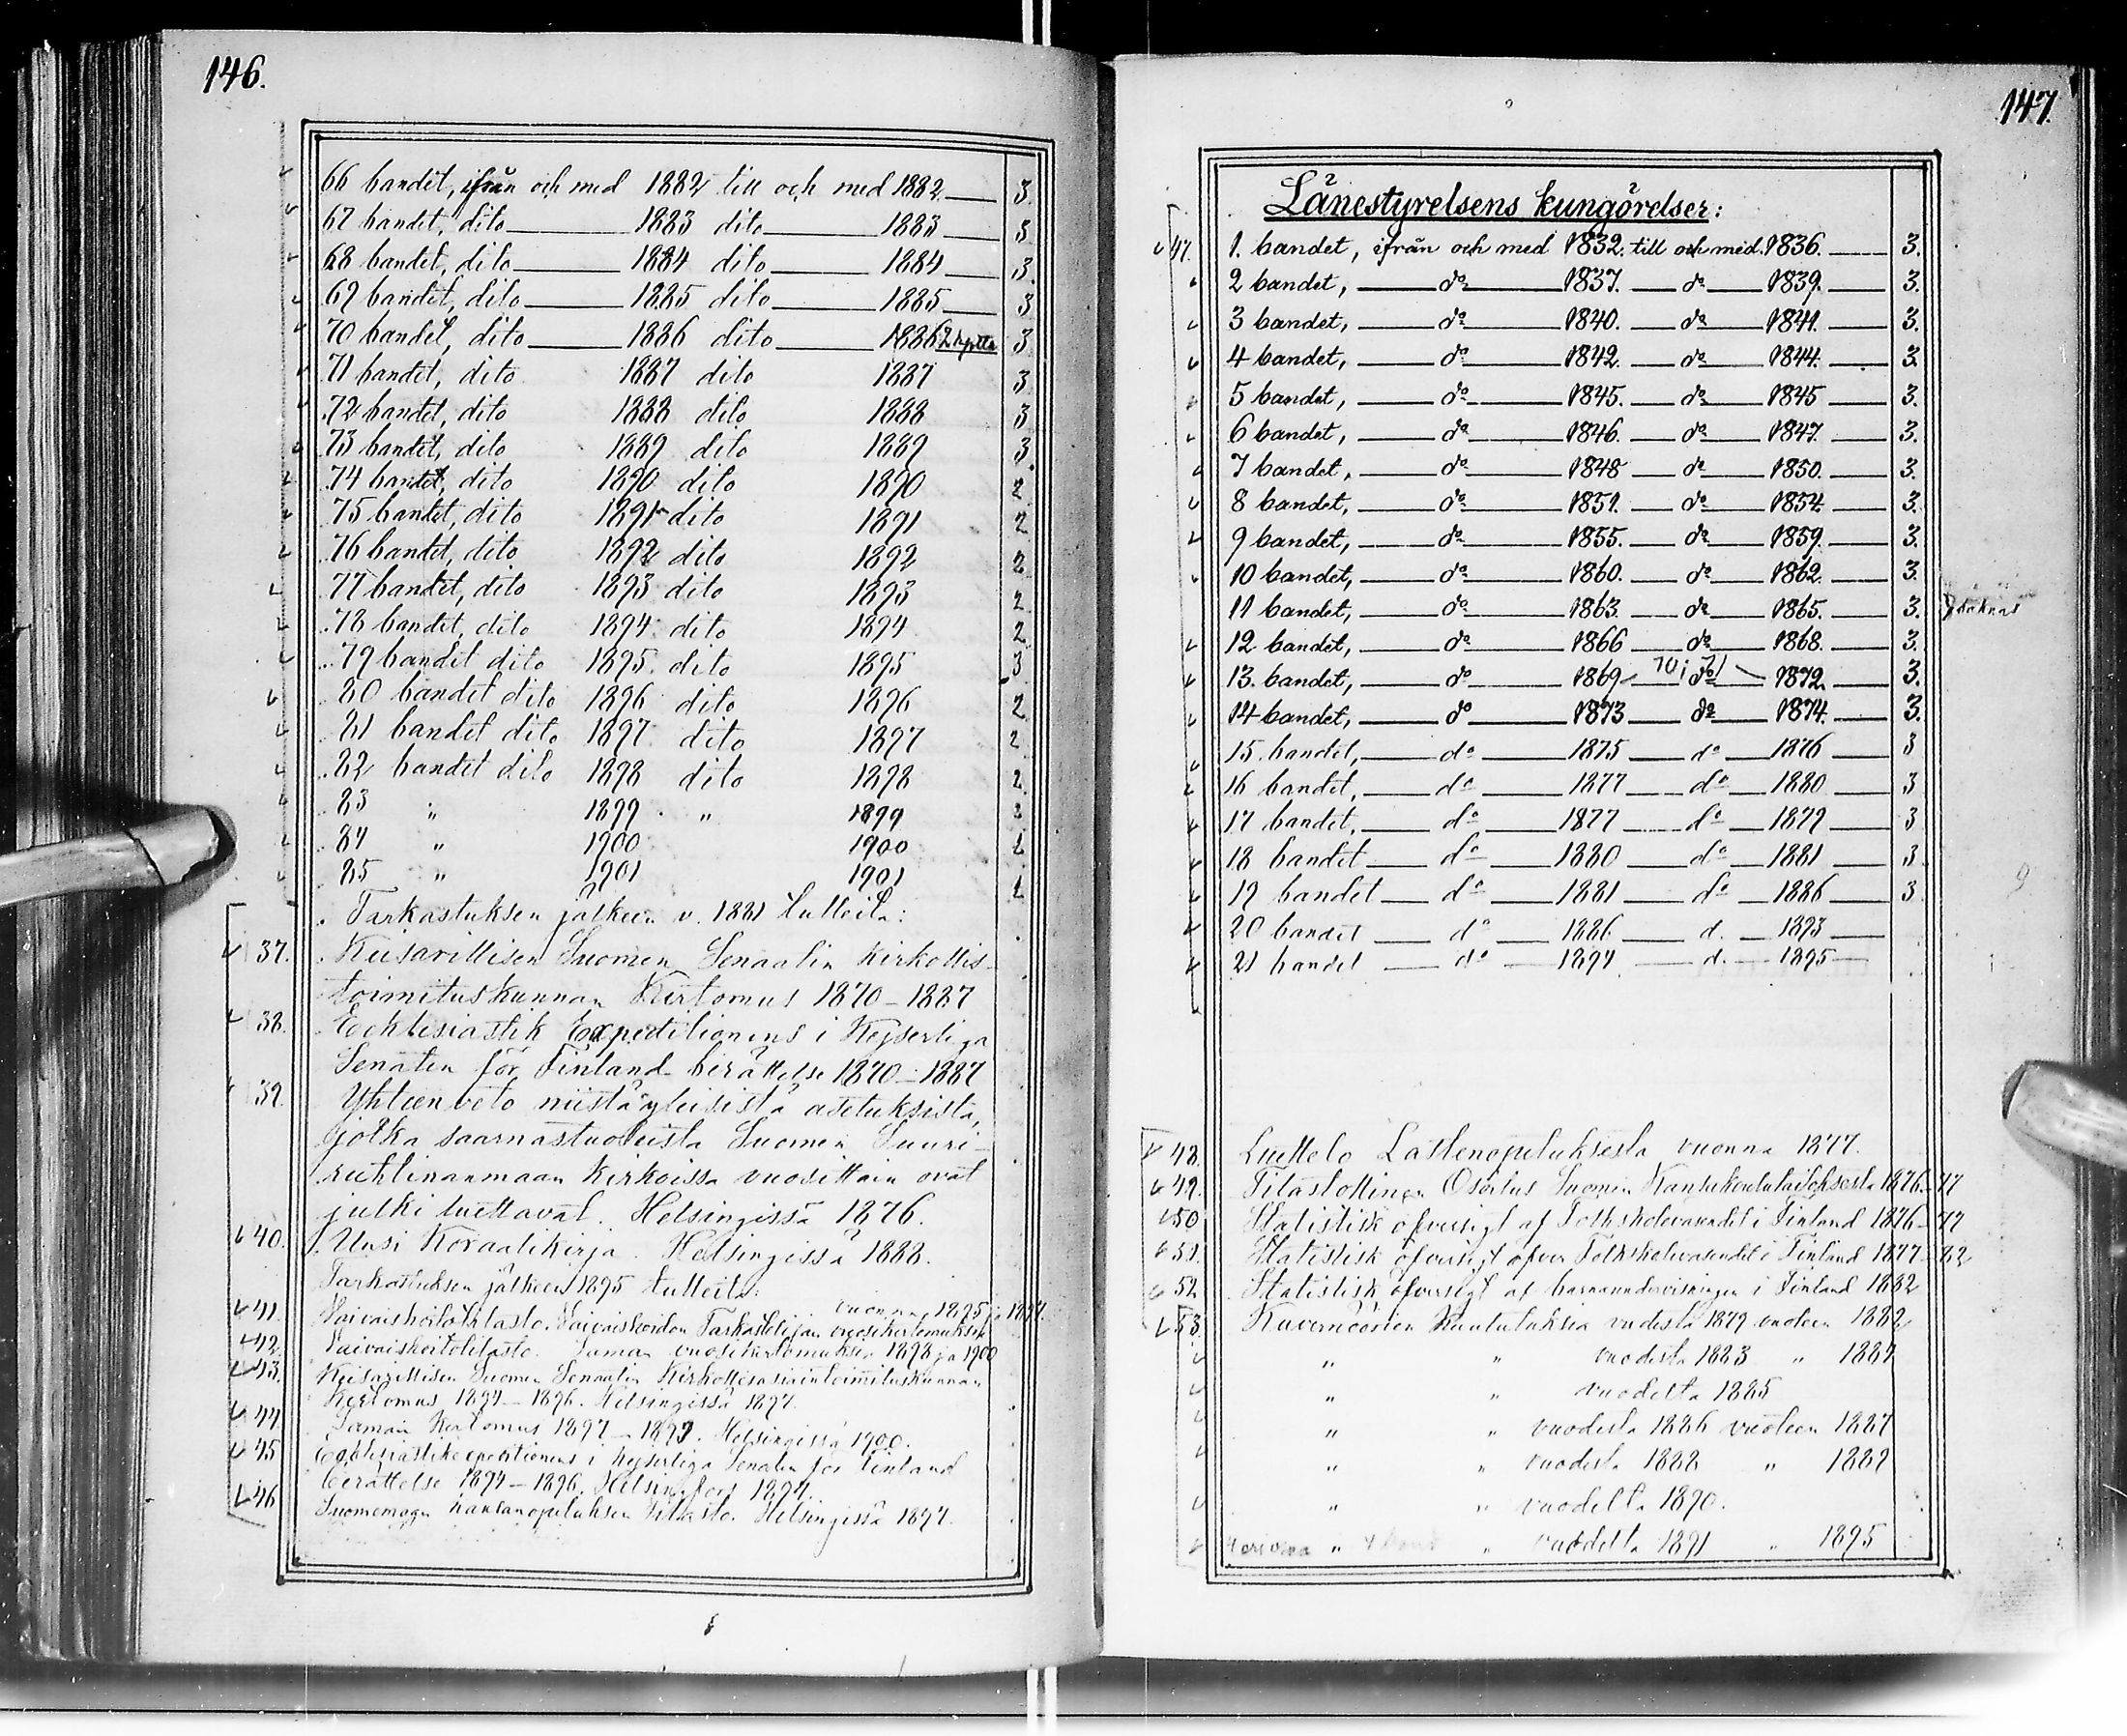 146.
66 bandet, ifrån och med 1882 till och med 1882 3
67 bandet, dito 1883 dito 1883 3
68 bandet, dito 1884 dito 1884 3
69 bandet, dito 1885 dito 1885 3
70 bandet, dito 1886 dito 1886 3
71 bandet, dito 1887 dito 1887 3
72 bandet, dito 1888 dito 1888 3
73 bandet, dito 1889 dito 1889 3
74 bandet, dito 1890 dito 1890 2
75 bandet, dito 1891 dito 1891 2
76 bandet, dito 1892 dito 1892 2
77 bandet, dito 1893 dito 1893 2
78 bandet, dito 1894 dito 1894 2
79 bandet dito 1895 dito 1895 3
80 bandet dito 1896 dito 1896 2
81 bandet dito 1897 dito 1897 2
82 bandet dito 1898 dito 1898 2
83 " 1899 " 1899
84 " 1900 1900
85 " 1901 1901
Tarkastuksen jälkeen v. 1881 tulleita:
37. Keisarillisen Suomen Senaatin Kirkollis-
toimituskunnan Kertomus 1870–1887
38. Ecklesiastik Expeditionens i Kejserliga
Senaten för Finland berättelse 1870–1887
39. Yhteenveto niistä yleisistä asetuksista,
jotka saarnastuoleista Suomen Suuri-
ruhtinanmaan kirkoissa vuosittain ovat
julki luettavat. Helsingissä 1876.
40. Uusi Koraalikirja. Helsingissä 1888.
Tarkastuksen jälkeen 1895 tulleita:
vuonna 1895 ja 1897.
41. Vaivaishoitotilasto. Vaivaishoidon Tarkastelijan vuosikertomuksia
42. Vaivaishoitotilasto. Saman vuosikertomuksia 1898 ja 1900
43. Keisarillisen Suomen Senaatin Kirkollisasiaintoimituskunnan
Kertomus 1894–1896. Helsingissä 1897.
44. Saman Kertomus 1897–1899. Helsingissä 1900.
45 Ecklesiastikexpeditionens i Kejserliga Senaten för Finland
berättelse 1894–1896. Helsingfors 1897.
46 Suomenmaan kansanopetuksen tilasto. Helsingissä 1897.
147.
Länestyrelsens kungörelser:
47. 1. bandet, ifrån och med 1832. till och med 1836. 3.
2 bandet, do 1837. do 1839. 3.
3 bandet, do 1840. do 1841. 3.
4 bandet, do 1842. do 1844. 3.
5 bandet, do 1845. do 1845 3.
6 bandet, do 1846. do 1847. 3.
7 bandet, do 1848 do 1850. 3.
8 bandet, do 1851. do 1854. 3.
9 bandet, do 1855. do 1859. 3.
10 bandet, do 1860. do 1862. 3.
11 bandet, do 1863. do 1865. 3. saknas
12 bandet, do 1866 do 1868. 3.
13. bandet, do 1869 70, 71 do 1872. 3.
14 bandet, do 1873 do 1874. 3.
15. bandet, do 1875 do 1876 3
16 bandet, do 1877 do 1880 3
17 bandet, do 1877 do 1879 3
18 bandet do 1880 do 1881 3
19 bandet do 1881 do 1886 3
20 bandet do 1886 d. 1893
21 bandet do 1894 d. 1895
48. Luettelo Lastenopetuksesta vuonna 1877.
49. Tilastollinen Osoitus Suomen Kansakoululaitoksesta 1876–77
50 Statistisk öfversigt af Folkskolevasendet i Finland 1876–77
51. Statistisk öfversigt öfver Folkskolevasendet i Finland 1877–82
52. Statistisk öfversigt af barnaundervisningen i Finland 1882
53. Kuvernöörien Kuulutuksia vudesta 1879 vuoteen 1882
" " vuodesta 1883 " 1884
" " vuodelta 1885
" " vuodesta 1886 vuoteen 1887
" " vuodesta 1888 " 1889
" " vuodelta 1890.
" " vuodelta 1891 " 1895